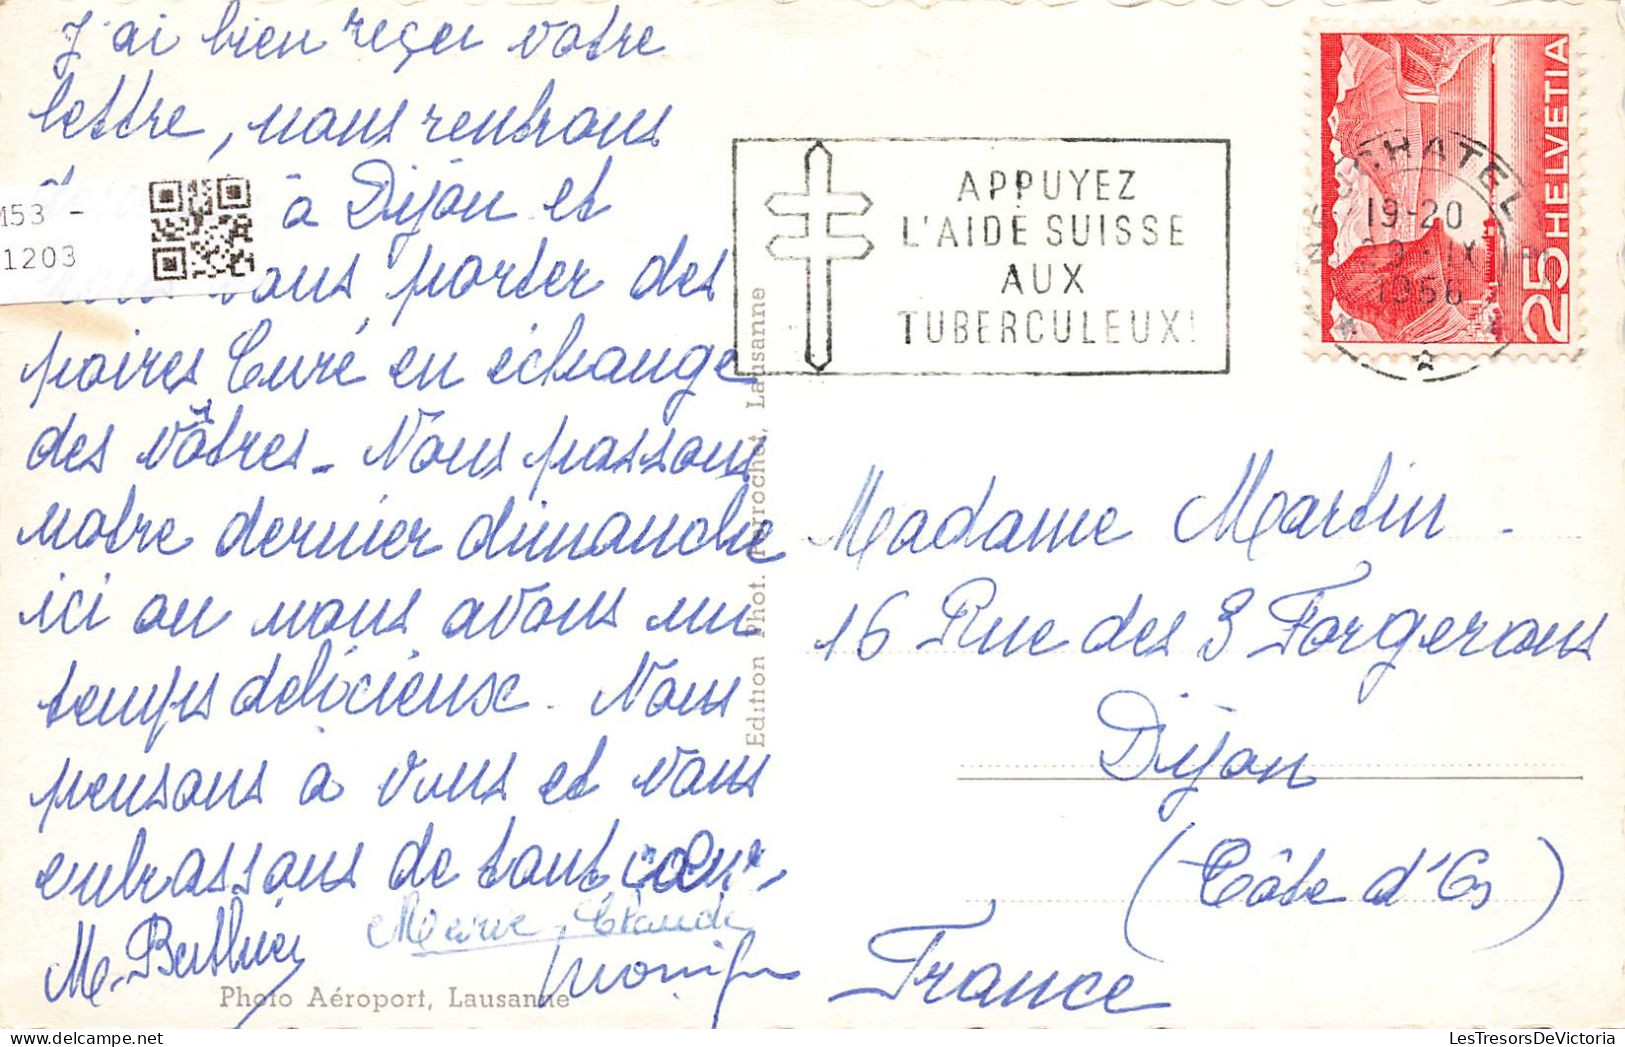 J'ai bien reçer votre
lettre, nous rentrons
à Dijon et
vous porter des
poires Curé en échange
des vôtres - Nous passons
notre dernier dimanche
ici ou nous avons un
temps délicieuse. Nous
pensons à vous et vous
embrassons de tout coeur,
M. Berthier
Marie-Claude
Monique
Photo Aéroport, Lausanne
M53 -
1203
Edition Phot. Perrochet, Lausanne
APPUYEZ
L'AIDE SUISSE
AUX
TUBERCULEUX!
NEUCHATEL
19-20
IX
1956
25 HELVETIA
Madame Martin -
16 Rue des 3 Forgerons
Dijon
(Côte d'Or)
France
delcampe.net
LesTresorsDeVictoria